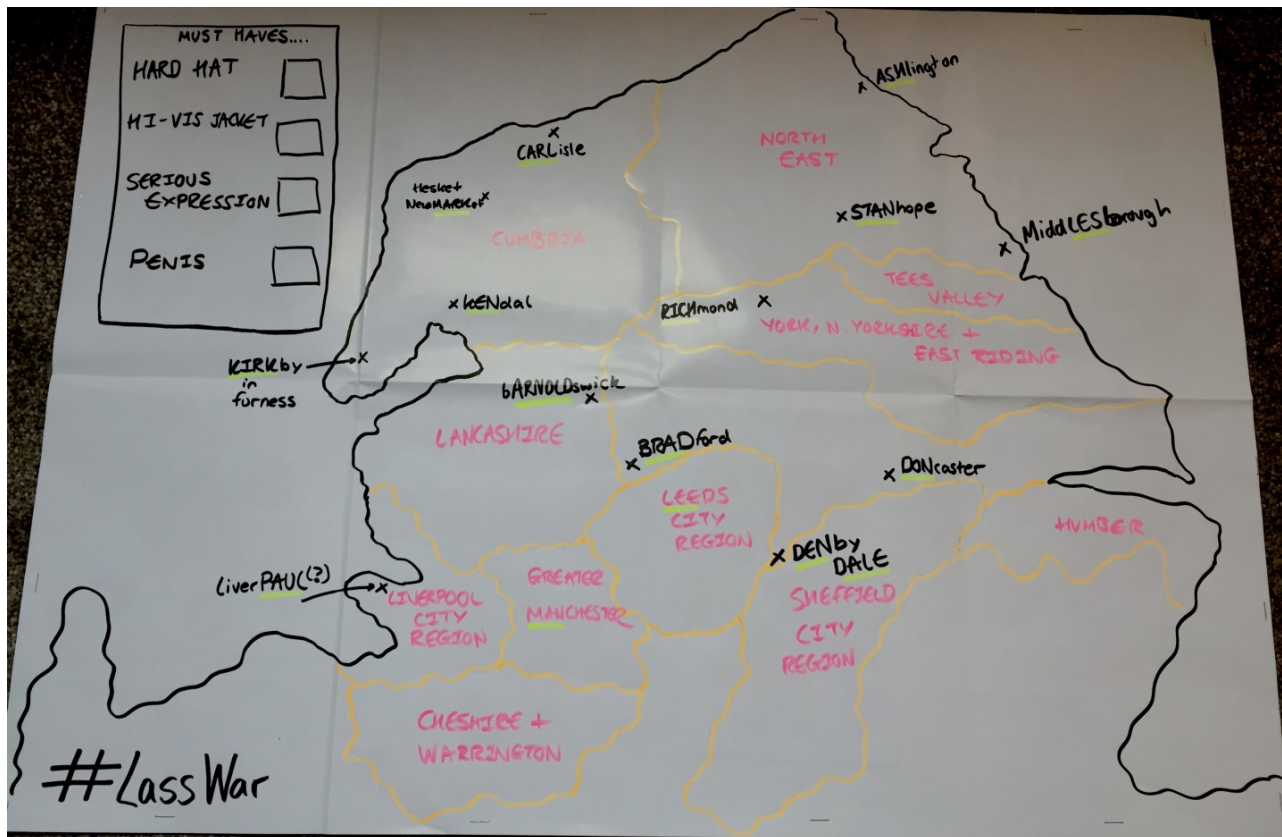 MUST HAVES....
HARD HAT
HI-VIS JACKET
SERIOUS
EXPRESSION
PENIS
ASHlington
CARLisle
NORTH
EAST
Hesket
NewMARKet
STANhope
MiddLESborough
CUMBRIA
TEES
VALLEY
KENdal
RICHmond
YORK, N. YORKSHIRE +
EAST RIDING
KIRKby
in
furness
bARNOLDswick
LANCASHIRE
BRADford
DONcaster
LEEDS
CITY
REGION
HUMBER
DENby
DALE
LiverPAUL(?)
LIVERPOOL
CITY
REGION
GREATER
MANCHESTER
SHEFFIELD
CITY
REGION
CHESHIRE +
WARRINGTON
#LassWar